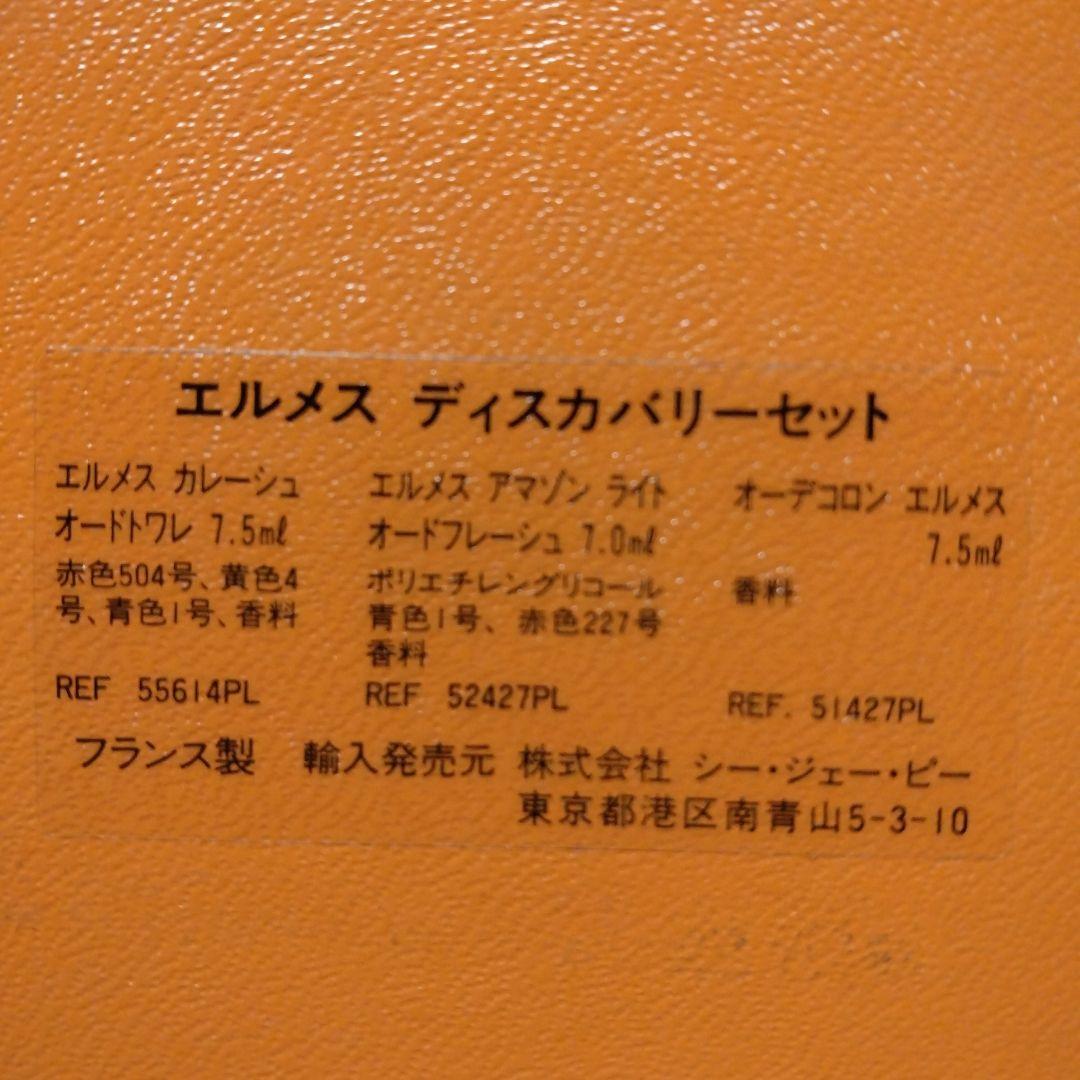 エルメス ディスカバリーセット
エルメス カレーシュ
オードトワレ 7.5ml
赤色504号、黄色4
号、青色1号、香料
REF 55614PL
エルメス アマゾン ライト
オードフレーシュ 7.0ml
ポリエチレングリコール
青色1号、赤色227号
香料
REF 52427PL
オーデコロン エルメス
7.5ml
香料
REF. 51427PL
フランス製 輸入発売元 株式会社 シー・ジェー・ピー
東京都港区南青山5-3-10